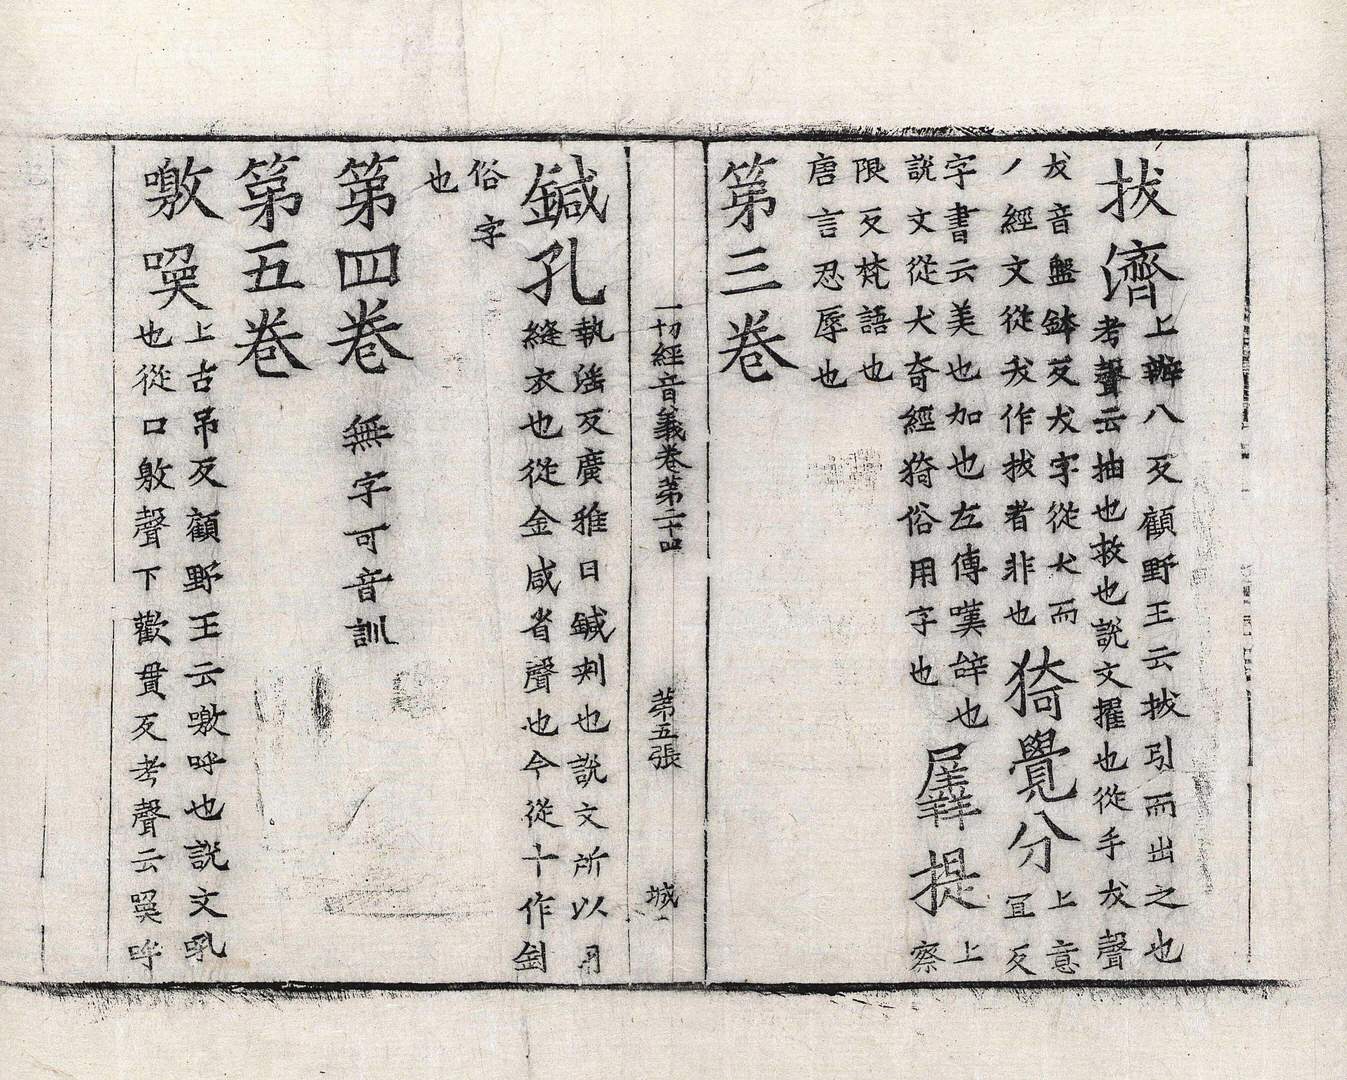 拔濟上辦八反顧野王云拔引而出之也
考聲云抽也救也說文擢也從手犮聲
犮音盤鉢反犮字從犬而
丿經文從犮作拔者非也
猗覺分上意
宜反
字書云美也加也左傳嘆辝也
說文從犬奇經猗俗用字也
羼提上
察
限反梵語也
唐言忍辱也
第三卷
一切經音義卷第二十四 第五張 城
鍼孔執滛反廣雅曰鍼刾也說文所以用
縫衣也從金咸省聲也今從十作釗
俗字
也
第四卷 無字可音訓
第五卷
噭㗛上古吊反顧野王云噭呼也說文吼
也從口敫聲下歡貫反考聲云㗛呼